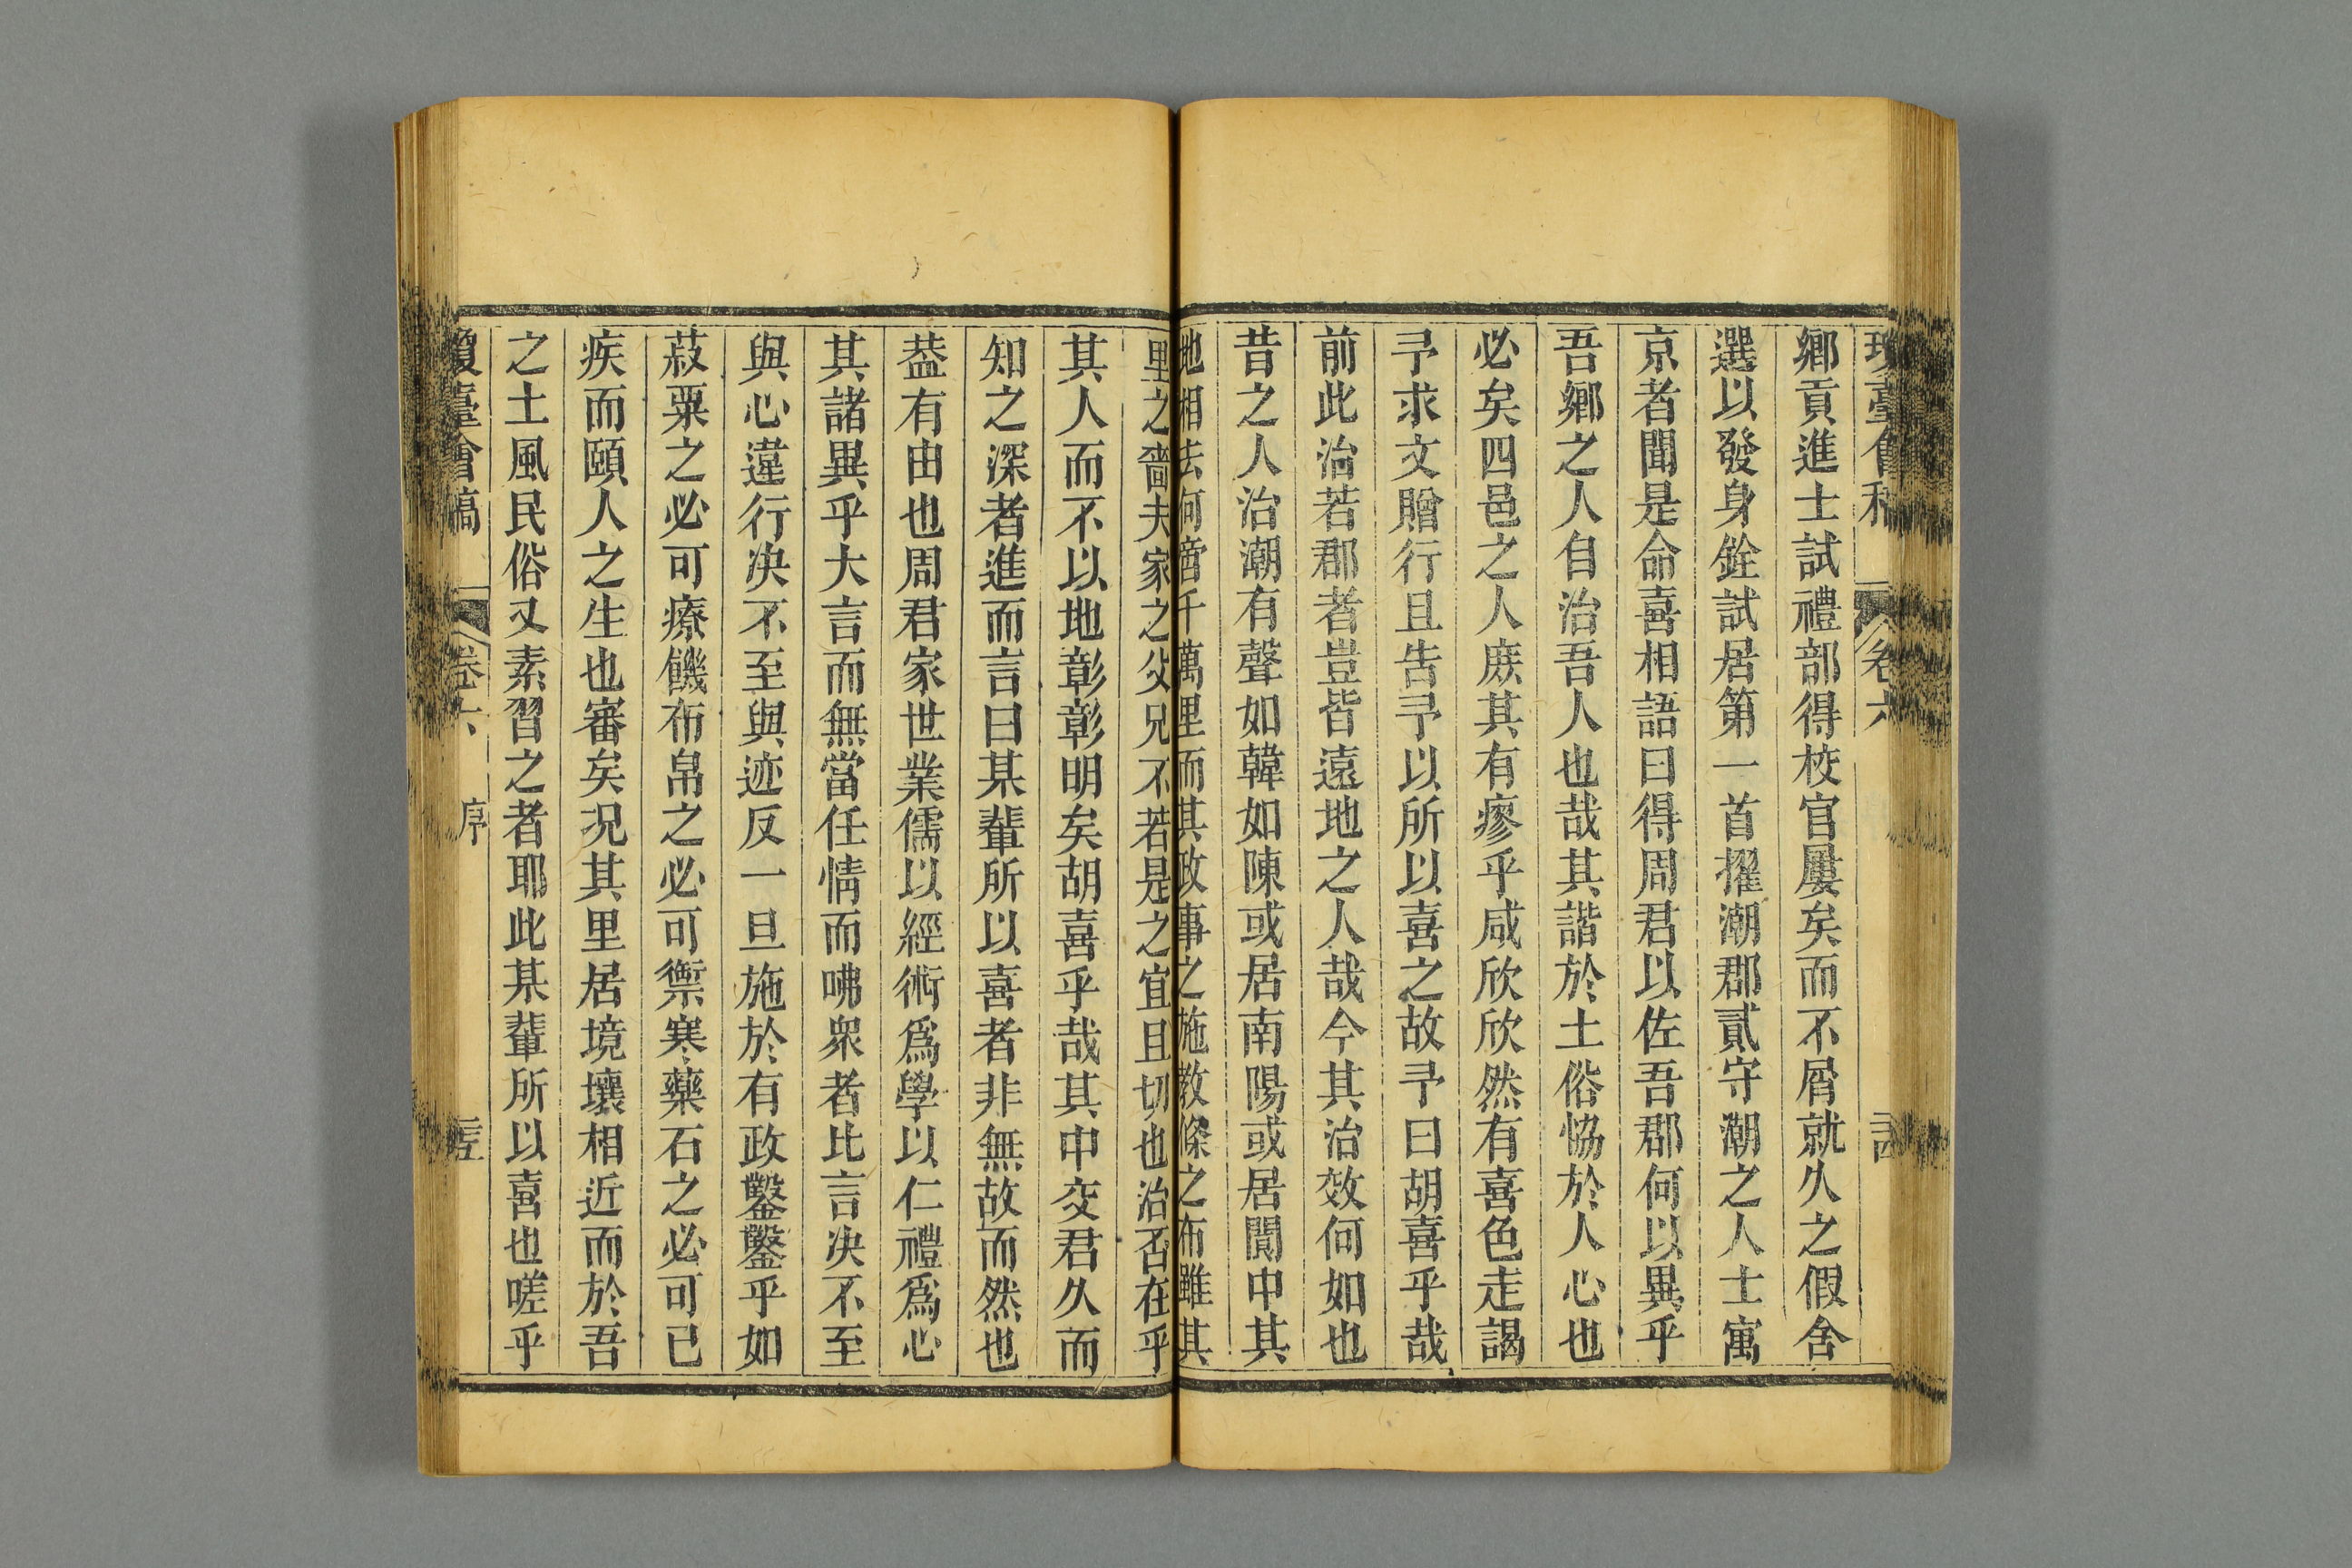 瓊臺會稿 卷六
鄉貢進士試禮部得校官屢矣而不屑就久之假舍
選以發身銓試居第一首擢潮郡貳守潮之人士寓
京者聞是命喜相語曰得周君以佐吾郡何以異乎
吾鄉之人自治吾人也哉其諧於土俗恊於人心也
必矣四邑之人庶其有瘳乎咸欣欣然有喜色走謁
予求文贈行且告予以所以喜之故予曰胡喜乎哉
前此治若郡者豈皆遠地之人哉今其治效何如也
昔之人治潮有聲如韓如陳或居南陽或居閩中其
地相去何啻千萬里而其政事之施教條之布雖其
里之嗇夫家之父兄不若是之宜且切也治否在乎
其人而不以地彰彰明矣胡喜乎哉其中交君久而
知之深者進而言曰某輩所以喜者非無故而然也
葢有由也周君家世業儒以經術爲學以仁禮爲心
其諸異乎大言而無當任情而咈衆者比言决不至
與心違行决不至與迹反一旦施於有政鑿鑿乎如
菽粟之必可療饑布帛之必可禦寒藥石之必可已
疾而頤人之生也審矣况其里居境壤相近而於吾
之土風民俗又素習之者耶此某輩所以喜也嗟乎
瓊臺會稿 卷六 序